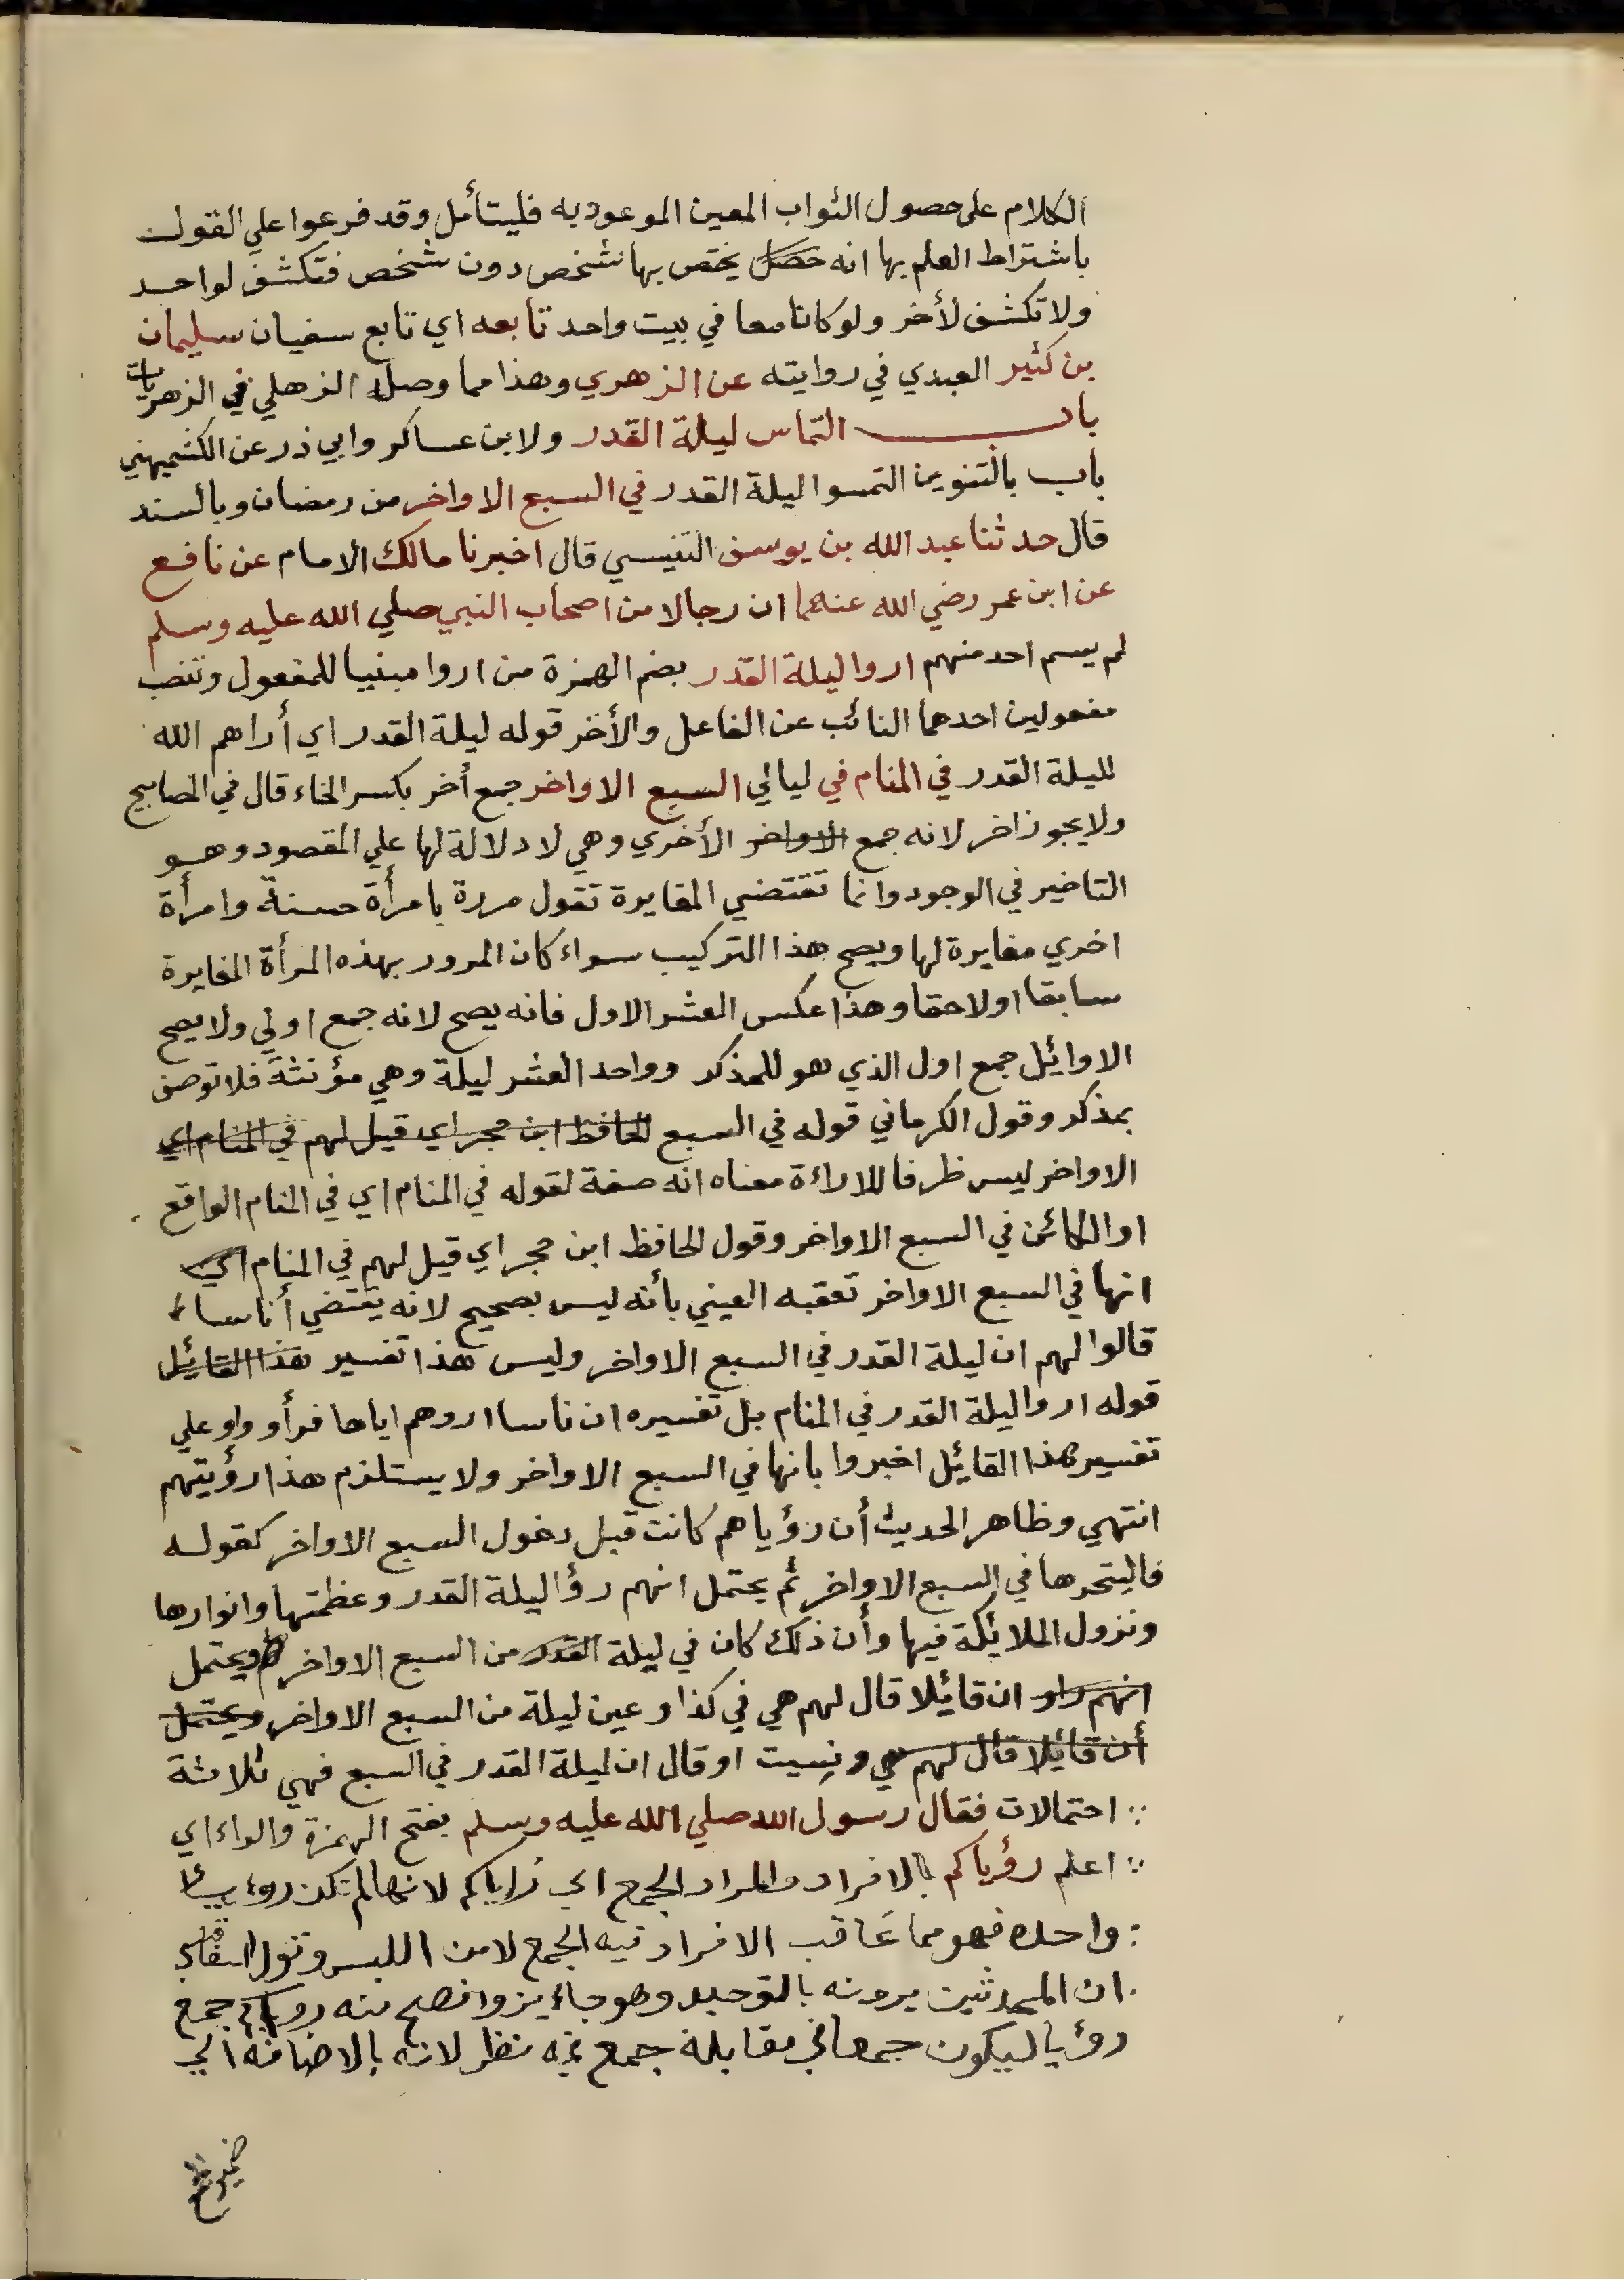 الكلام على حصول الثواب المعين الموعود به فليتأمل وقد فرعوا علي القول
باشتراط العلم بها انه حصل يختص بها شخص دون شخص فتكشف لواحد
ولا تكشف لأخر ولو كانا معا في بيت واحد تابعه اي تابع سفيان سليمان
بن كثير العبدي في روايته عن الزهري وهذا مما وصله الذهلي في الزهريات
باب التماس ليلة القدر ولابن عساكر وابي ذر عن الكشميهني
باب بالتنوين التمسوا ليلة القدر في السبع الاواخر من رمضان وبالسند
قال حدثنا عبد الله بن يوسف التنيسي قال اخبرنا مالك الامام عن نافع
عن ابن عمر رضي الله عنهما ان رجالا من اصحاب النبي صلي الله عليه وسلم
لم يسم احد منهم اروا ليلة القدر بضم الهمزة من اروا مبنيا للمفعول وتنصب
مفعولين احدهما النائب عن الفاعل والأخر قوله ليلة القدر اي أراهم الله
لليلة القدر في المنام في ليالي السبع الاواخر جمع أخر بكسر الخاء قال في المصابيح
ولا يجوز اخر لانه جمع الاواخر الأخري وهي لا دلالة لها علي المقصود وهو
التاخير في الوجود وانما تقتضي المغايرة تقول مررة بامرأة حسنة وامرأة
اخري مغايرة لها ويصح هذا التركيب سواء كان المرور بهذه المرأة المغايرة
سابقا او لاحقا وهذا عكس العشر الاول فانه يصح لانه جمع اولي ولا يصح
الاوائيل جمع اول الذي هو للمذكر وواحد العشر ليلة وهي مؤنثة فلا توصف
بمذكر وقول الكرماني قوله في السبع الحافظ ابن حجر اي قيل لهم في المنام اي
الاواخر ليس ظرفا للاراءة معناه انه صفة لقوله في المنام اي في المنام الواقع
او الكائن في السبع الاواخر وقول الحافظ ابن حجر اي قيل لهم في المنام اي
انها في السبع الاواخر تعقبه العيني بأنه ليس بصحيح لانه يقتضي أناسا
قالوا لهم ان ليلة القدر في السبع الاواخر وليس هذا تفسير هذا القائيل
قوله اروا ليلة القدر في المنام بل تفسيره ان ناسا اروهم اياها فرأو واو علي
تفسير هذا القائيل اخبروا بانها في السبع الاواخر ولا يستلزم هذا رؤيتهم
انتهي وظاهر الحديث أن رؤياهم كانت قبل دخول السبع الاواخر كقوله
فاليتحرها في السبع الاواخر ثم يحتمل انهم رؤا ليلة القدر وعظمتها وانوارها
ونزول الملائيكة فيها وأن ذلك كان في ليلة القدر من السبع الاواخر ويحتمل
انهم راو ان قائيلا قال لهم هي في كذا وعين ليلة من السبع الاواخر ويحتمل
أن قائيلا قال لهم هي ونسيت او قال ان ليلة القدر في السبع فهي ثلاثة
احتمالات فقال رسول الله صلي الله عليه وسلم بفتح الهمزة والراء اي
اعلم رؤياكم بالافراد والمراد الجمع اي رؤاياكم لانها لم تكن رويا
واحده فهو مما عاقب الافراد فيه الجمع لامن اللبس وقول السفاقسي
ان المحدثين يرونه بالتوحيد وهو جائيز وافصح منه رؤياكم جمع
رؤيا ليكون جمعا في مقابلة جمع فيه نظر لانه بالاضافة الي
ضمير الجمع